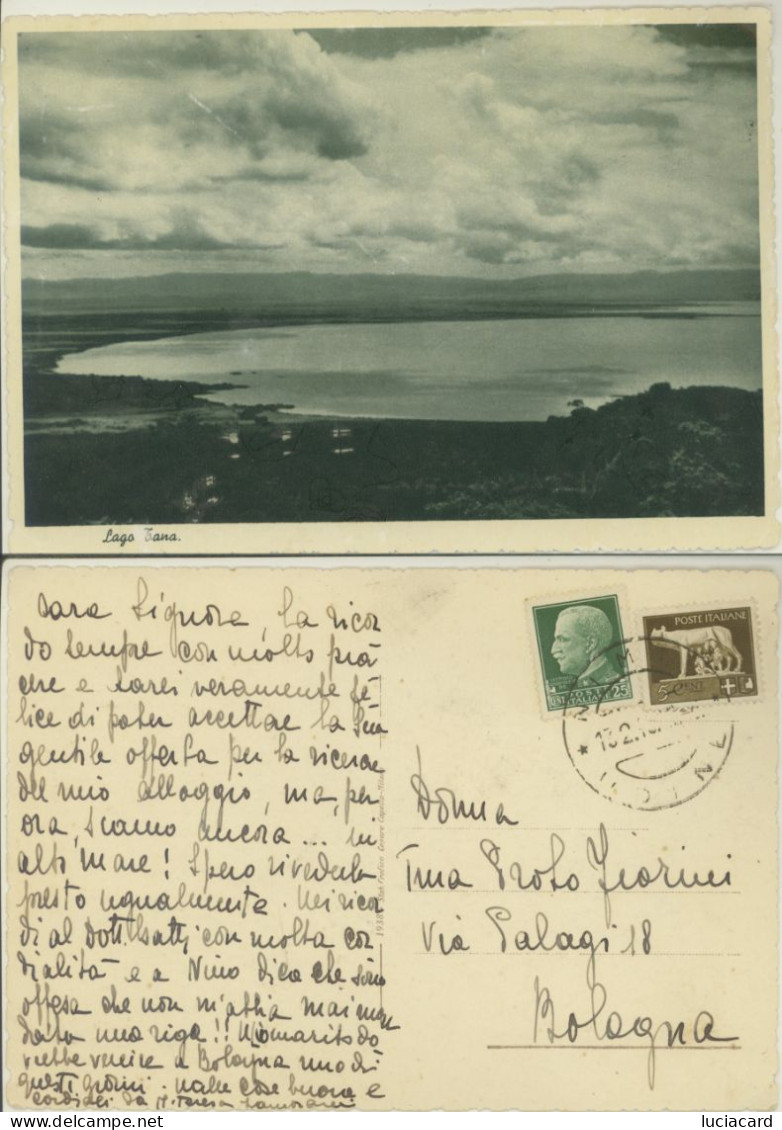 Lago Tana.
cara Signora, la ricor
do sempre con molto pia
cere e sarei veramente fe
lice di poter accettare la Sua
gentile offerta per la ricerca
del mio alloggio, ma, per
ora, siamo ancora... in
alto mare! Spero rivederla
presto ugualmente. Mi ricor
di al Dott. con molta cor
dialità e a Nino dica che sono
offesa che non m'abbia mai man
dato una riga!! Mio marito do
vrebbe venire a Bologna uno di
questi giorni. Tante cose buone e
cordiali da M. Teresa
POSTE ITALIANE
5 CENT
25
13.2.
1938
Donna
Tina Proto Fiorini
Via Palagi 18
Bologna
delcampe.net
luciacard